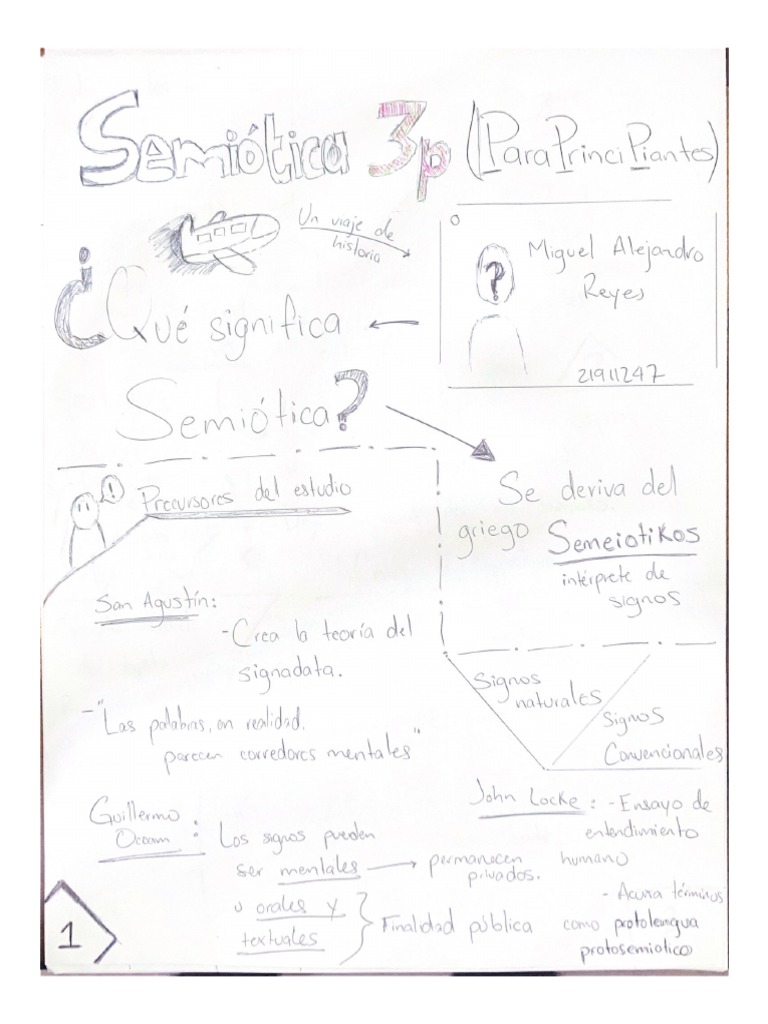 Semiótica 3p (ParaPrinciPiantes)
Un viaje de
historia
Miguel Alejandro
Reyes
21911247
?
¿Qué significa
Semiótica?
!
Precursores del estudio
Se deriva del
griego Semeiotikos
intérprete de
signos
San Agustín:
-Crea la teoría del
signadata.
-"Las palabras, en realidad,
parecen corredores mentales"
Signos
naturales
Signos
Convencionales
Guillermo
Ocoam :
Los signos pueden
ser mentales → permanecen
privados.
u orales y
textuales
Finalidad pública
John Locke : - Ensayo de
entendimiento
humano
- Acuña términos
como protolengua
protosemiotico
1